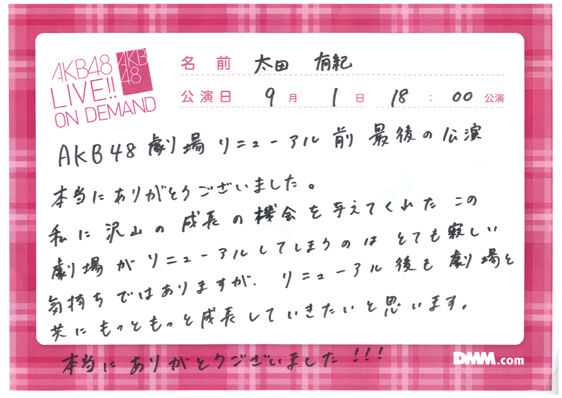 AKB48
LIVE!!
ON DEMAND
AKB
48
名前 太田 有紀
公演日 9月 1日 18:00 公演
AKB48 劇場 リニューアル前 最後の公演
本当にありがとうございました。
私に沢山の成長の機会を与えてくれたこの
劇場がリニューアルしてしまうのはとても寂しい
気持ちではありますが、リニューアル後も劇場と
共にもっともっと成長していきたいと思います。
本当にありがとうございました!!!
DMM.com